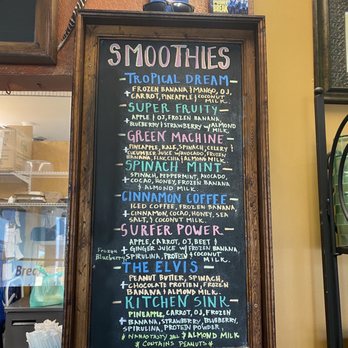 SMOOTHIES
TROPICAL DREAM
FROZEN BANANA & MANGO, OJ,
CARROT, PINEAPPLE & COCONUT
MILK.
SUPER FRUITY
APPLE & OJ, FROZEN BANANA,
BLUEBERRY & STRAWBERRY & ALMOND
MILK.
GREEN MACHINE
PINEAPPLE, KALE, SPINACH, CELERY &
CUCUMBER JUICE W/AVOCADO, FROZEN
BANANA, & ALMOND MILK.
SPINACH MINT
SPINACH, PEPPERMINT, AVOCADO,
COCAO, HONEY, FROZEN BANANA
& ALMOND MILK.
CINNAMON COFFEE
ICED COFFEE, FROZEN BANANA
CINNAMON, COCAO, HONEY, SEA
SALT, & COCONUT MILK.
SURFER POWER
APPLE, CARROT, OJ, BEET &
GINGER JUICE W/ FROZEN BANANA
Frozen
Blueberry
SPIRULINA, PROTEIN & COCONUT
MILK.
THE ELVIS
PEANUT BUTTER, SPINACH,
CHOCOLATE PROTEIN, FROZEN
BANANA & ALMOND MILK.
KITCHEN SINK
PINEAPPLE, CARROT, OJ, FROZEN
BANANA, STRAWBERRY, BLUEBERRY,
SPIRULINA, PROTEIN POWDER,
& ALMOND MILK
CONTAINS PEANUTS